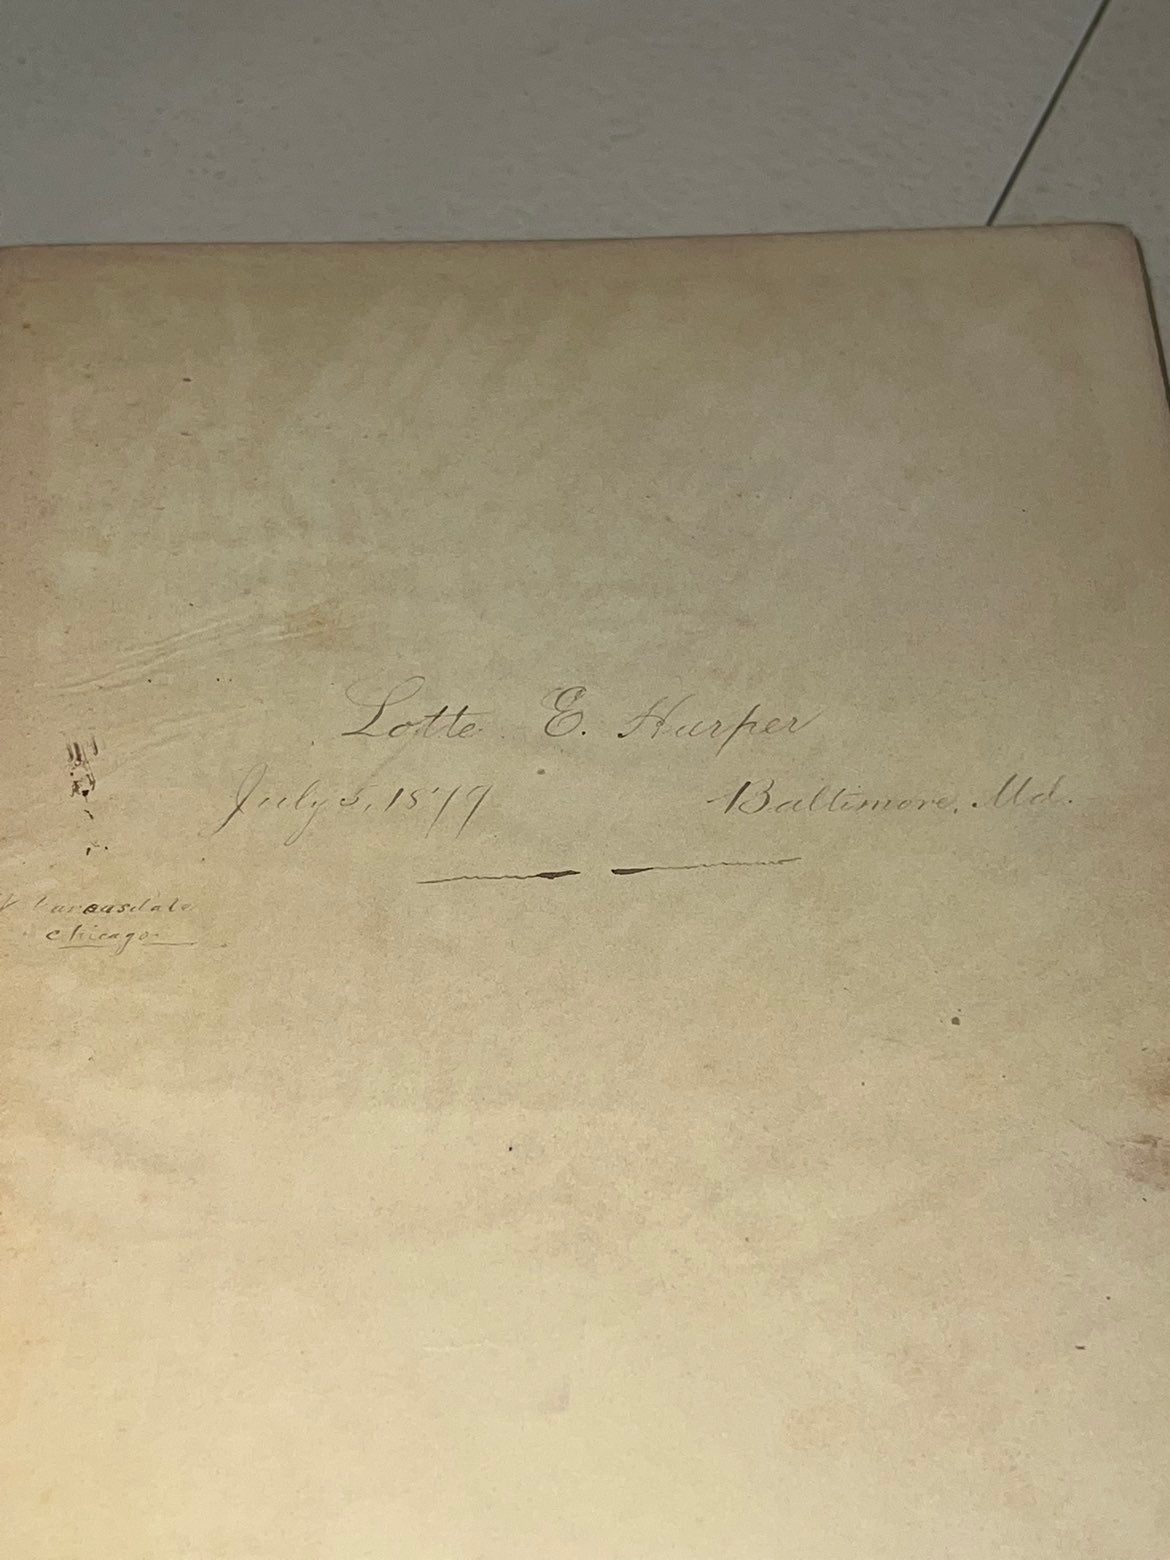 Lotte E. Harper
July 5, 1879 Baltimore, Md.
Chicago